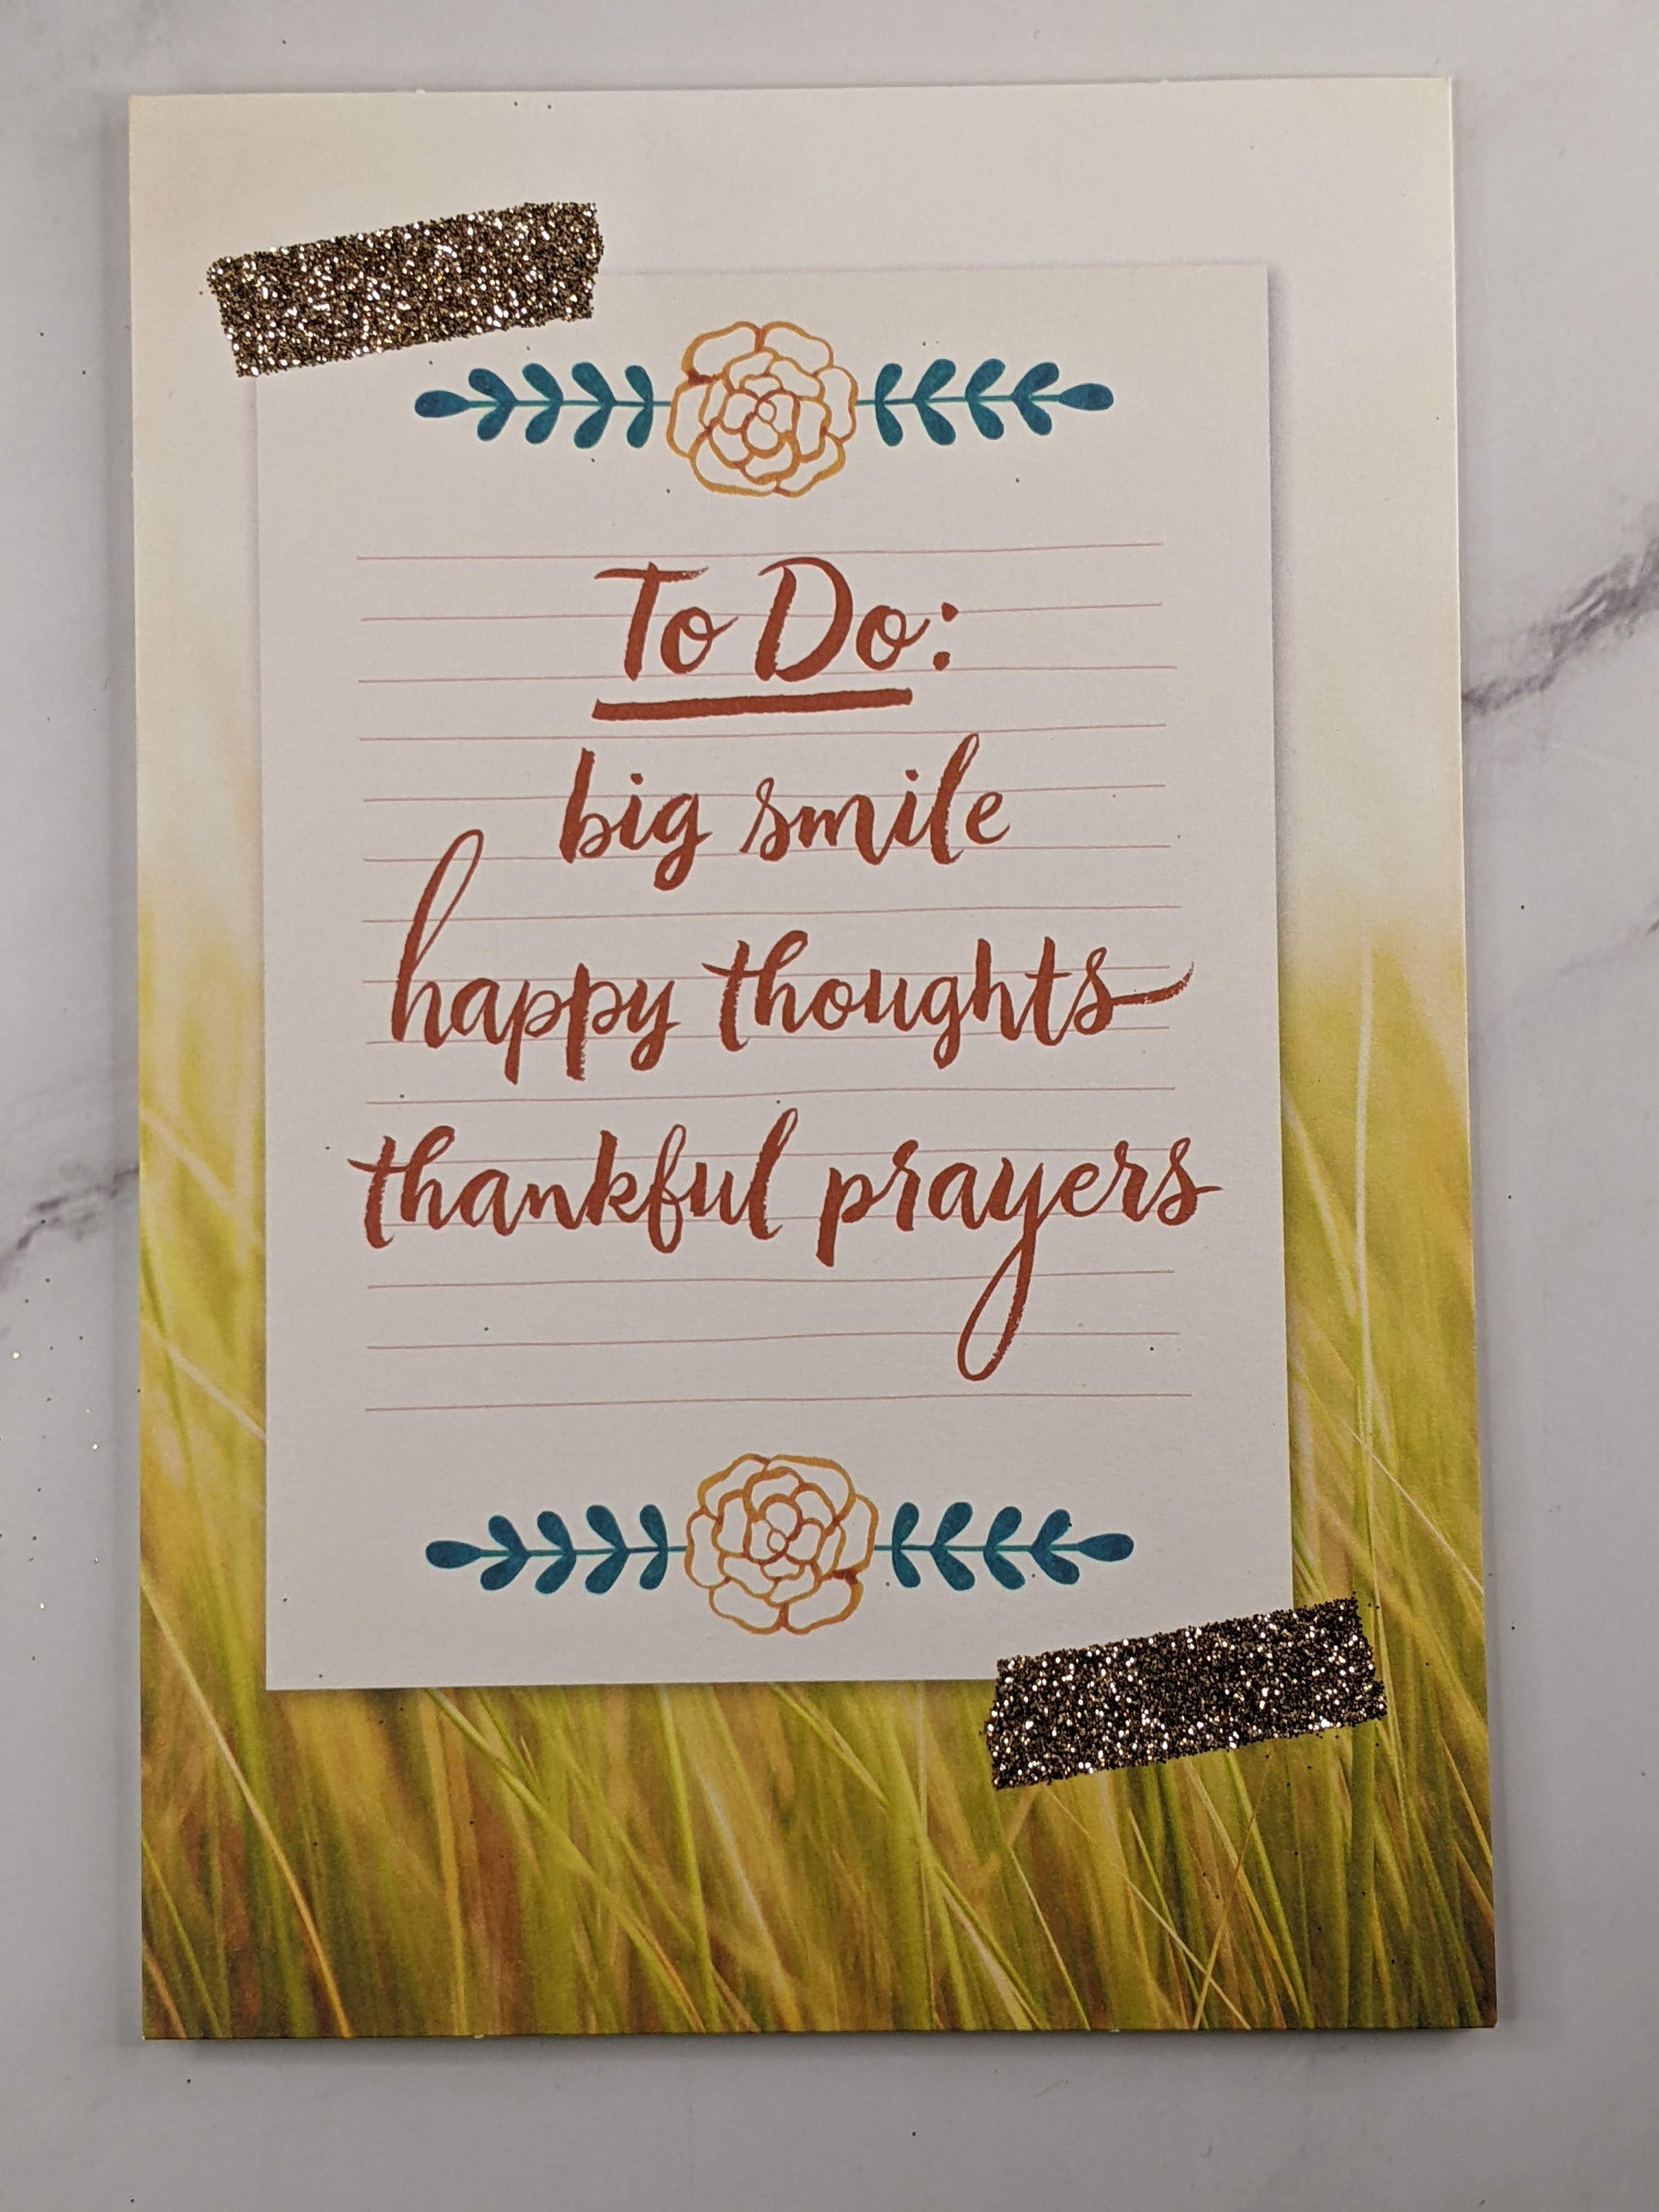 To Do:
big smile
happy thoughts
thankful prayers